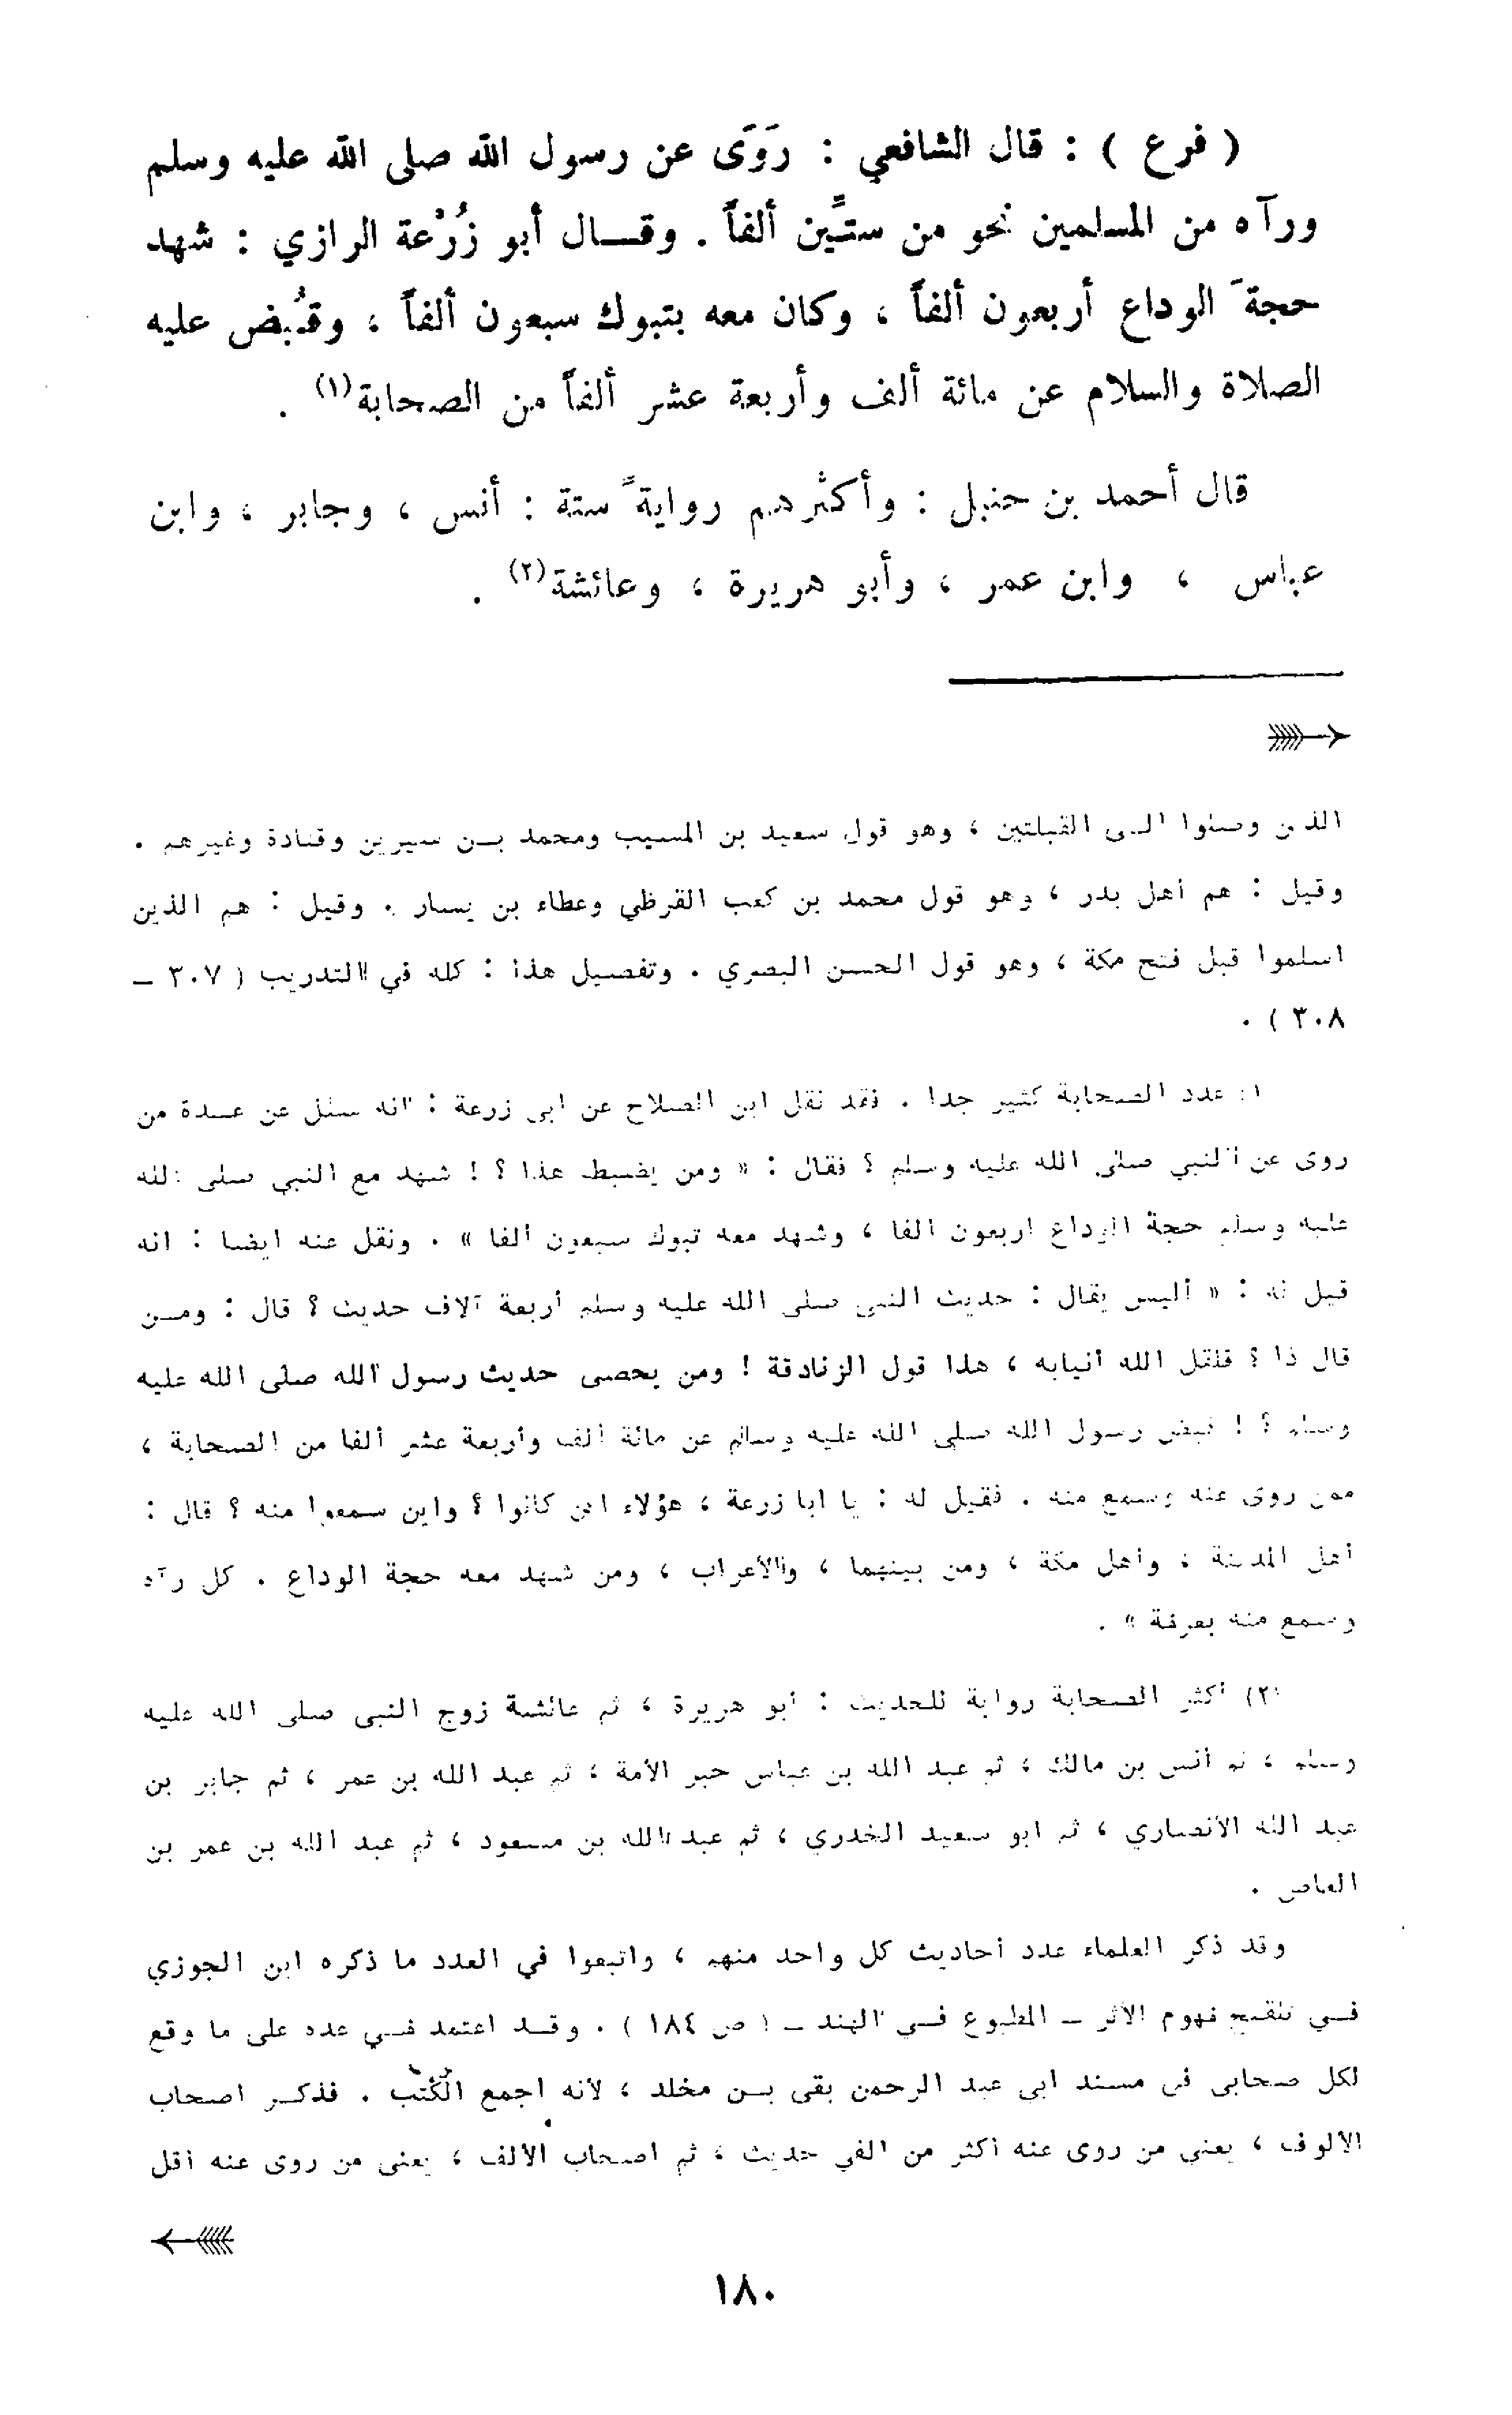 ( فرع ) : قال الشافعي : رَوَى عن رسول الله صلى الله عليه وسلم
ورآه من المسلمين نحو من ستِّين ألفاً . وقـــال أبو زُرْعة الرازي : شهد
حجةَ الوداع أربعون ألفاً ، وكان معه بتبوك سبعون ألفاً ، وقُبض عليه
الصلاة والسلام عن مائة ألف وأربعة عشر ألفاً من الصحابة(١) .
قال أحمد بن حنبل : وأكثرهم روايةً ستة : أنس ، وجابر ، وابن
عباس ، وابن عمر ، وأبو هريرة ، وعائشة(٢) .
الذين وصلوا الـى القبلتين ، وهو قول سعيد بن المسيب ومحمد بـن سيرين وقتادة وغيرهم .
وقيل : هم أهل بدر ، وهو قول محمد بن كعب القرظي وعطاء بن يسار . وقيل : هم الذين
اسلموا قبل فتح مكة ، وهو قول الحسن البصري . وتفصيل هذا : كله في التدريب ( ٣٠٧ –
٣٠٨ ) .
١) عدد الصحابة كثير جدا . فقد نقل ابن الصلاح عن ابى زرعة : انه سئل عن عـدة من
روى عن النبي صلى الله عليه وسلم ؟ فقال : « ومن يضبط هذا ؟ ! شهد مع النبي صلى الله
عليه وسلم حجة الوداع اربعون الفا ، وشهد معه تبوك سبعون الفا » . ونقل عنه ايضا : انه
قيل له : « أليس يقال : حديث النبى صلى الله عليه وسلم أربعة آلاف حديث ؟ قال : ومـن
قال ذا ؟ قلقل الله أنيابه ، هذا قول الزنادقة ! ومن يحصى حديث رسول الله صلى الله عليه
وسلم ؟ ! قبض رسول الله صلى الله عليه وسلم عن مائة ألف وأربعة عشر ألفا من الصحابة ،
ممن روى عنه وسمع منه . فقيل له : يا ابا زرعة ، هؤلاء اين كانوا ؟ واين سمعوا منه ؟ قال :
أهل المدينة ، وأهل مكة ، ومن بينهما ، والأعراب ، ومن شهد معه حجة الوداع . كل رآه
وسمع منه بعرفة » .
(٢) أكثر الصحابة رواية للحديث : أبو هريرة ، ثم عائشة زوج النبى صلى الله عليه
وسلم ، ثم أنس بن مالك ، ثم عبد الله بن عباس حبر الأمة ، ثم عبد الله بن عمر ، ثم جابر بن
عبد الله الأنصاري ، ثم ابو سعيد الخدري ، ثم عبد الله بن مسعود ، ثم عبد الله بن عمر بن
العاص .
وقد ذكر العلماء عدد أحاديث كل واحد منهم ، واتبعوا في العدد ما ذكره ابن الجوزي
فـي تلقيح فهوم الأثر – المطبوع فـي الهند – ( ص ١٨٤ ) . وقـد اعتمد فـي عده على ما وقع
لكل صحابى فى مسند ابى عبد الرحمن بقى بـن مخلد ، لأنه اجمع الكُتُب . فذكـر اصحاب
الالوف ، يعنى من روى عنه أكثر من ألفي حديث ، ثم اصحاب الألف ، يعنى من روى عنه أقل
١٨٠